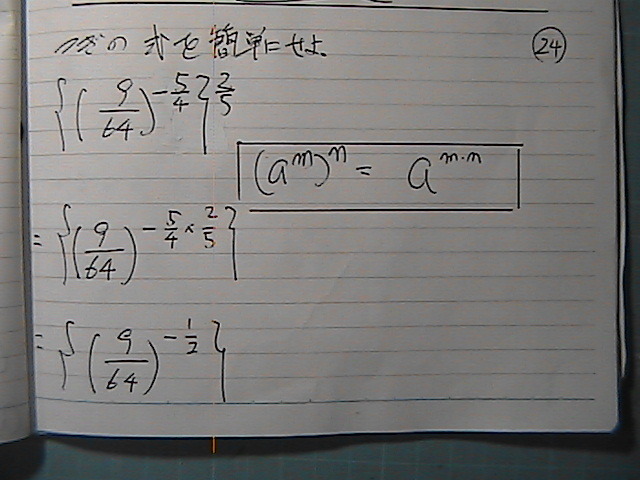 次の式を簡単にせよ。 (24)
{(9/64)^{-5/4}}^{2/5}
(a^m)^n = a^{m・n}
= {(9/64)^{-5/4 × 2/5}}
= {(9/64)^{-1/2}}